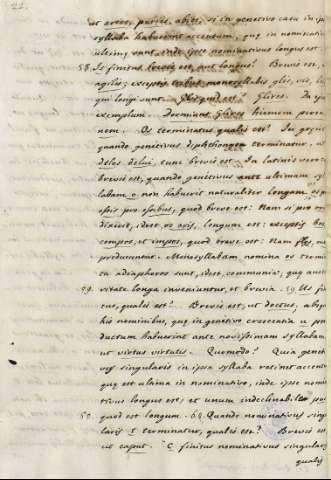 22.
ut aries, paries, abies, si in genetivo casu in
syllaba habuerint accentum, quę in nominati
ultim, sunt, inde ipse nominativus longus est
58. Is finitus brevis est, aut longus? Brevis est,
agilis; exceptis tribus monosyllabis glis, vis, l
qui longi sunt. Glis quid est? Glires. Da
exemplum. Dormiunt Glires hiemem
nem. Os terminatus qualis est? In
quando genitivus diphthongo terminatur,
delos delui, tunc brevis est. In latinis vero
brevis est, quando genitivus ante ultimam sy
labam o non habuerit naturaliter longam,
ossis pro ossibus, quod breve est: Nam si pro
dixeris, idest, os oris, longum est: exceptis
compos, et impos, quod breve est: Nam
producuntur. Monosyllabam nomina os termi
ta adiaphoros sunt, idest, communia; quę
vitate longa inveniuntur, et brevia. 59 Us fi
59. tus, qualis est? Brevis est, ut doctus,
his nominibus, quę in genetivo crescentia u
ductum habuerint ante novissimam syllabam
ut virtus virtutis. Quomodo? Quia genet
vus singularis in ipsa syllaba retinet accent
quę est ultima in nominativo, inde ipse nomi
tivus longus est: et unum indeclinab.
quod est longum. 60. Quando nominativus sing
60. laris T terminatur, qualis est? Brevis est
ut caput. C finitus nominativus singular
qualis